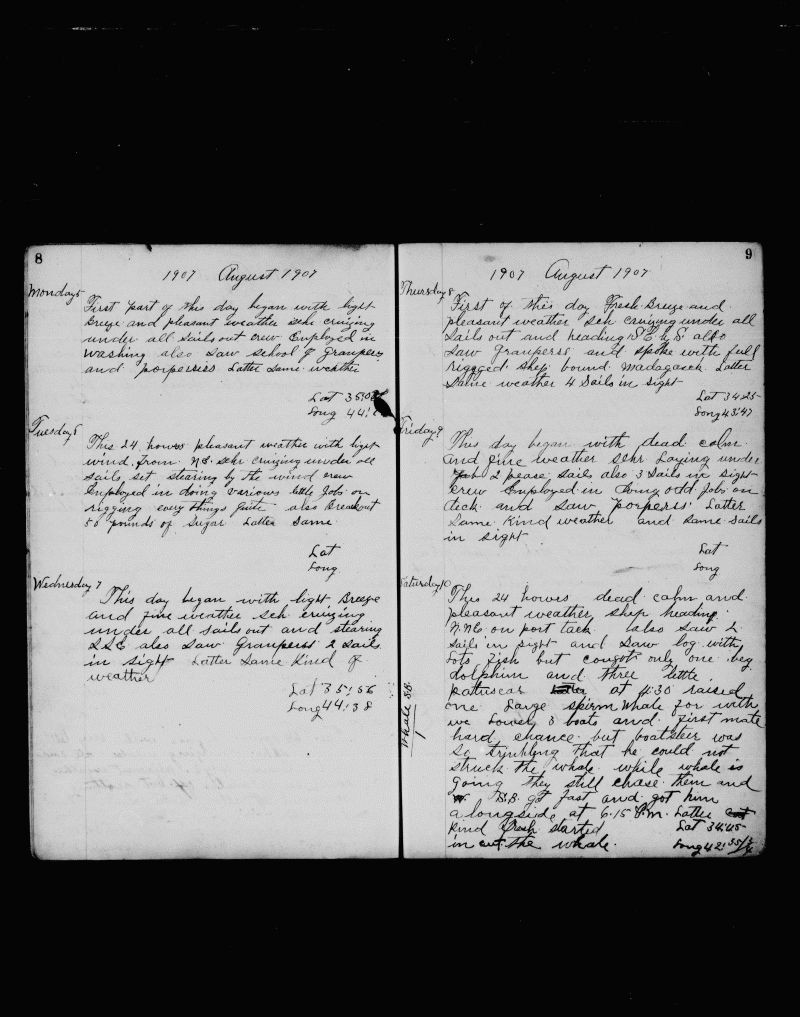 8
1907 August 1907
Monday 5
First part of this day began with light
Breeze and pleasant weather Schr cruizing
under all sails out crew Employed in
washing also Saw School of Granpers
and porpersies Latter Same weather
Lat 35:08
Long 44:
Tuesday 6
This 24 howrs pleasant weather with light
wind from NE. Schr cruizing under all
sails set stearing by the wind crew
Employed in doing variows little Jobs on
rigging every things quite also Breakout
50 pounds of Sugar Latter Same
Lat
Long
Wednesday 7
This day began with light Breeze
and fine weather Sch cruizing
under all sails out and stearing
SSE also Saw Granperss 2 Sails
in sight Latter Same Kind of
weather
Lat 35:56
Long 44:38
9
1907 August 1907
Thursday 8
First of this day Fresh Breeze and
pleasant weather Sch cruizing under all
Sails out and heading S.E. by S. also
Saw Granperss and spoke with full
rigged ship bound Madagasek Latter
Same weather 4 Sails in sight
Lat 34:25
Long 43:47
Friday 9
This day began with dead calm
and fine weather Schr Laying under
2 pease sails also 3 Sails in sight
crew Employed in Doing odd Jobs on
deck and Saw porperss' Latter
Same Kind weather and Same Sails
in sight
Lat
Long
Saturday 10
This 24 howrs dead calm and
pleasant weather ship heading
N.NE on port tack also Saw 2
Sails in sight and Saw log with
Lots Fish but cought only one big
dolphin and three little
patuscar at 4:30 raised
one Large spirm Whale for with
we Lower 3 boats and First mate
hard chance but boatsteer was
So trinkling that he could not
struck the whale while whale is
going they still chase them and
S.B. got fast and got him
alongside at 6.15 P.m. Latter
Kind fresh started
Lat 34:45
in cut the whale.
Long 42:55
Whale S.B.
1